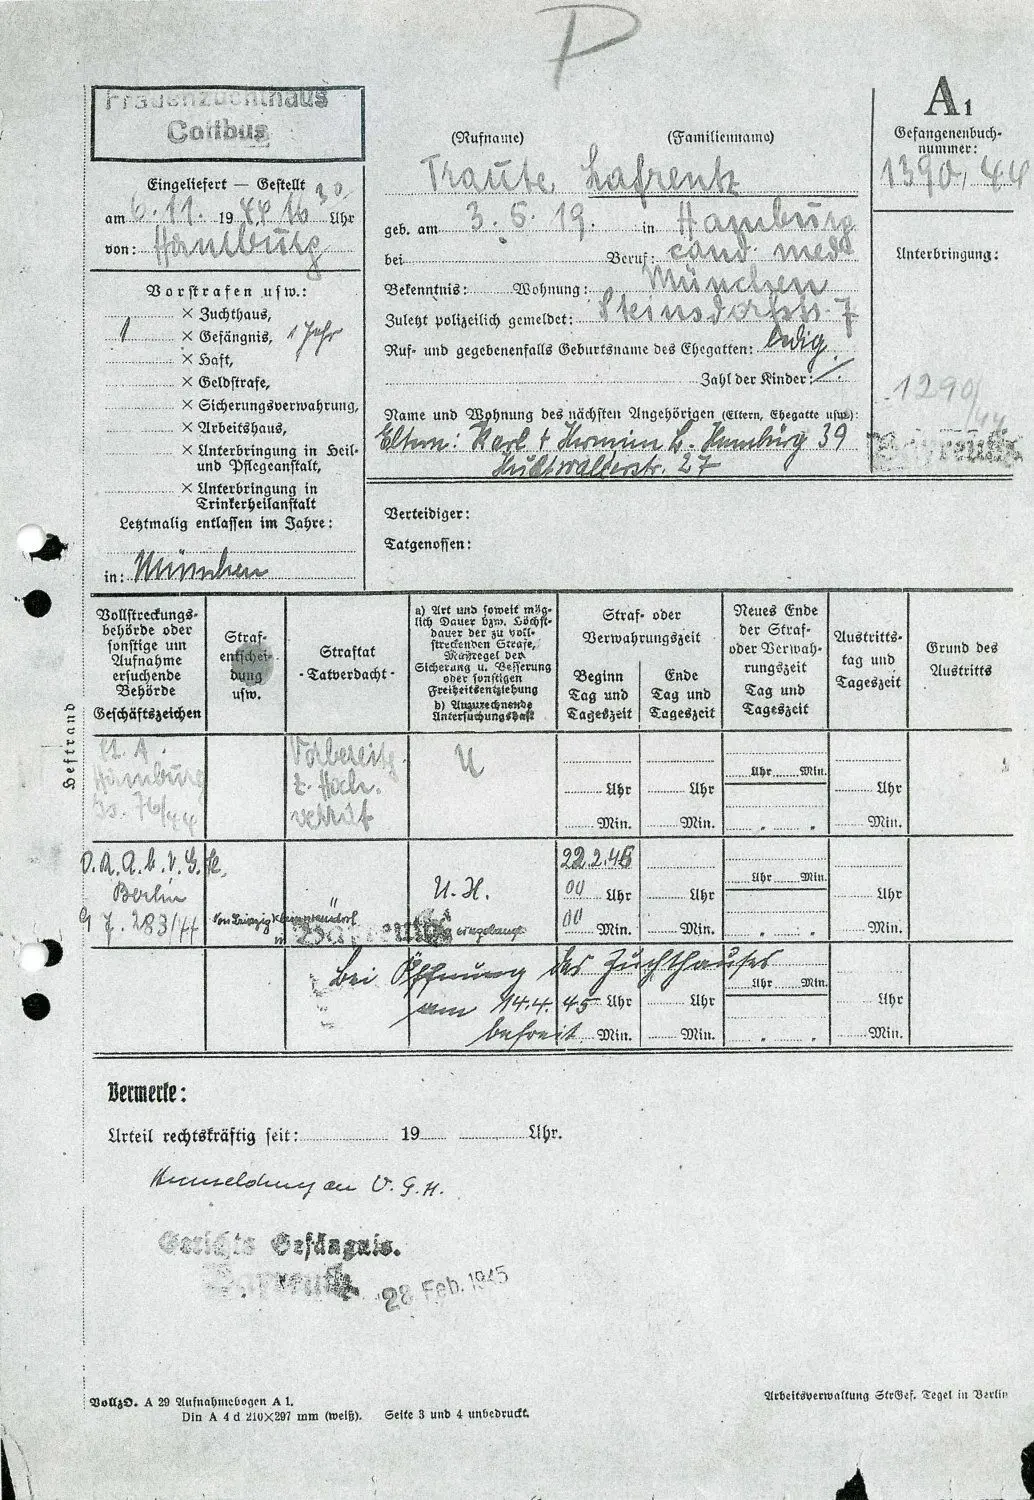 P
Frauenzuchthaus
Cottbus
Eingeliefert — Gestellt
am 6.11. 1944 16 30 Uhr
von: Hamburg
(Rufname) (Familienname)
Traute Lafrentz
geb. am 3.5.19. in Hamburg
bei Beruf: cand. med.
Bekenntnis: Wohnung: München
Zuletzt polizeilich gemeldet: Steinsdorfstr. 7
Ruf- und gegebenenfalls Geburtsname des Ehegatten: ledig.
Zahl der Kinder: /.
Name und Wohnung des nächsten Angehörigen (Eltern, Ehegatte usw.):
Eltern: Karl + Hermine L. Hamburg 39
27
A1
Gefangenenbuch-
nummer:
1390, 44
Unterbringung:
1290/
44
Bayreuth
Vorstrafen usw.:
× Zuchthaus,
1 × Gefängnis, 1 Jahr
× Haft,
× Geldstrafe,
× Sicherungsverwahrung,
× Arbeitshaus,
× Unterbringung in Heil-
und Pflegeanstalt,
× Unterbringung in
Trinkerheilanstalt
Letztmalig entlassen im Jahre:
in: München
Verteidiger:
Tatgenossen:
Heftrand
Vollstreckungs-
behörde oder
sonstige um
Aufnahme
ersuchende
Behörde
Geschäftszeichen
Straf-
entschei-
dung
usw.
Straftat
- Tatverdacht -
a) Art und soweit mög-
lich Dauer bzw. Höchst-
dauer der zu voll-
streckenden Strafe,
Maßregel der
Sicherung u. Besserung
oder sonstigen
Freiheitsentziehung
b) Anzurechnende
Untersuchungshaft
Straf- oder
Verwahrungszeit
Beginn
Tag und
Tageszeit
Ende
Tag und
Tageszeit
Neues Ende
der Straf-
oder Verwah-
rungszeit
Tag und
Tageszeit
Austritts-
tag und
Tageszeit
Grund des
Austritts
St. A.
Hamburg
Js. 76/44
Vorbereitg.
z. Hoch-
verrat
U
Uhr Uhr Uhr Min. Uhr
Min. Min. " " Min.
O.R.A.b.V.G.H.
Berlin
9 J. 283/44
von Leipzig Kleinmeusdorf
in Bayreuth eingelangt
U.H.
22.2.45
00 Uhr Uhr Uhr Min. Uhr
00 Min. Min. " " Min.
Bei Öffnung des Zuchthauses
am 14.4.45
befreit
Uhr Uhr Uhr Min. Uhr
Min. Min. " " Min.
Vermerke:
Urteil rechtskräftig seit: 19 Uhr.
an V.G.H.
Gerichts Gefängnis.
Bayreuth 28 Feb. 1945
VollzO. A 29 Aufnahmebogen A 1.
Din A 4 d 210×297 mm (weiß). Seite 3 und 4 unbedruckt.
Arbeitsverwaltung StrGef. Tegel in Berlin